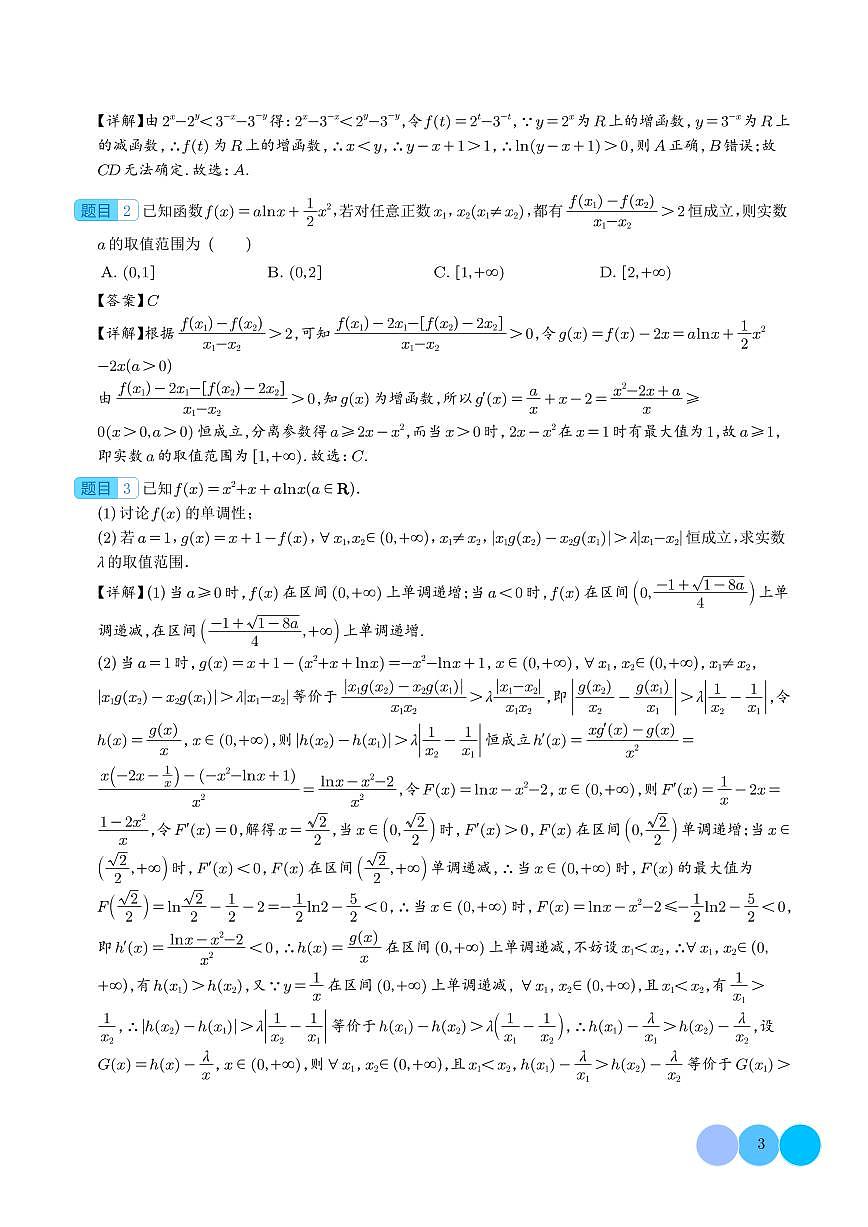 【详解】由 2ˣ−2ʸ<3⁻ˣ−3⁻ʸ得: 2ˣ−3⁻ˣ<2ʸ−3⁻ʸ,令f(t)=2ᵗ−3⁻ᵗ, ∵y=2ˣ为R上的增函数, y=3⁻ˣ为R上
的减函数, ∴f(t) 为R上的增函数, ∴x<y, ∴y−x+1>1, ∴ln(y−x+1)>0,则A正确, B错误;故
CD无法确定. 故选: A.
题目 2 已知函数f(x)=alnx+\frac{1}{2}x²,若对任意正数x₁, x₂(x₁≠x₂),都有\frac{f(x₁)−f(x₂)}{x₁−x₂}>2恒成立,则实数
a的取值范围为 (    )
A. (0,1] B. (0,2] C. [1,+∞) D. [2,+∞)
【答案】C
【详解】根据\frac{f(x₁)−f(x₂)}{x₁−x₂}>2,可知\frac{f(x₁)−2x₁−[f(x₂)−2x₂]}{x₁−x₂}>0,令g(x)=f(x)−2x=alnx+\frac{1}{2}x²
−2x(a>0)
由\frac{f(x₁)−2x₁−[f(x₂)−2x₂]}{x₁−x₂}>0,知g(x) 为增函数,所以g′(x)=\frac{a}{x}+x−2=\frac{x²−2x+a}{x}≥
0(x>0,a>0) 恒成立,分离参数得a≥2x−x²,而当x>0时, 2x−x²在x=1时有最大值为1,故a≥1,
即实数a的取值范围为[1,+∞). 故选: C.
题目 3 已知f(x)=x²+x+alnx(a∈R).
(1) 讨论f(x) 的单调性;
(2) 若a=1, g(x)=x+1−f(x), ∀x₁,x₂∈(0,+∞), x₁≠x₂, |x₁g(x₂)−x₂g(x₁)|>λ|x₁−x₂|恒成立,求实数
λ的取值范围.
【详解】(1) 当a≥0时, f(x) 在区间(0,+∞) 上单调递增;当a<0时, f(x) 在区间(0,\frac{−1+√(1−8a)}{4})上单
调递减,在区间(\frac{−1+√(1−8a)}{4},+∞)上单调递增.
(2) 当a=1时, g(x)=x+1−(x²+x+lnx)=−x²−lnx+1, x∈(0,+∞), ∀x₁, x₂∈(0,+∞), x₁≠x₂,
|x₁g(x₂)−x₂g(x₁)|>λ|x₁−x₂|等价于\frac{|x₁g(x₂)−x₂g(x₁)|}{x₁x₂}>λ\frac{|x₁−x₂|}{x₁x₂},即|\frac{g(x₂)}{x₂}−\frac{g(x₁)}{x₁}|>λ|\frac{1}{x₂}−\frac{1}{x₁}|,令
h(x)=\frac{g(x)}{x}, x∈(0,+∞),则|h(x₂)−h(x₁)|>λ|\frac{1}{x₂}−\frac{1}{x₁}|恒成立h′(x)=\frac{xg′(x)−g(x)}{x²}=
\frac{x(−2x−\frac{1}{x})−(−x²−lnx+1)}{x²}=\frac{lnx−x²−2}{x²},令F(x)=lnx−x²−2, x∈(0,+∞),则F′(x)=\frac{1}{x}−2x=
\frac{1−2x²}{x},令F′(x)=0,解得x=\frac{√2}{2},当x∈(0,\frac{√2}{2})时, F′(x)>0, F(x) 在区间(0,\frac{√2}{2})单调递增;当x∈
(\frac{√2}{2},+∞)时, F′(x)<0, F(x) 在区间(\frac{√2}{2},+∞)单调递减, ∴当x∈(0,+∞) 时, F(x) 的最大值为
F(\frac{√2}{2})=ln\frac{√2}{2}−\frac{1}{2}−2=−\frac{1}{2}ln2−\frac{5}{2}<0, ∴当x∈(0,+∞) 时, F(x)=lnx−x²−2≤−\frac{1}{2}ln2−\frac{5}{2}<0,
即h′(x)=\frac{lnx−x²−2}{x²}<0, ∴h(x)=\frac{g(x)}{x}在区间(0,+∞) 上单调递减,不妨设x₁<x₂, ∴∀x₁, x₂∈(0,
+∞),有h(x₁)>h(x₂),又∵y=\frac{1}{x}在区间(0,+∞) 上单调递减, ∀x₁, x₂∈(0,+∞),且x₁<x₂,有\frac{1}{x₁}>
\frac{1}{x₂}, ∴|h(x₂)−h(x₁)|>λ|\frac{1}{x₂}−\frac{1}{x₁}|等价于h(x₁)−h(x₂)>λ(\frac{1}{x₁}−\frac{1}{x₂}), ∴h(x₁)−\frac{λ}{x₁}>h(x₂)−\frac{λ}{x₂},设
G(x)=h(x)−\frac{λ}{x}, x∈(0,+∞),则∀x₁, x₂∈(0,+∞),且x₁<x₂, h(x₁)−\frac{λ}{x₁}>h(x₂)−\frac{λ}{x₂}等价于G(x₁)>
3